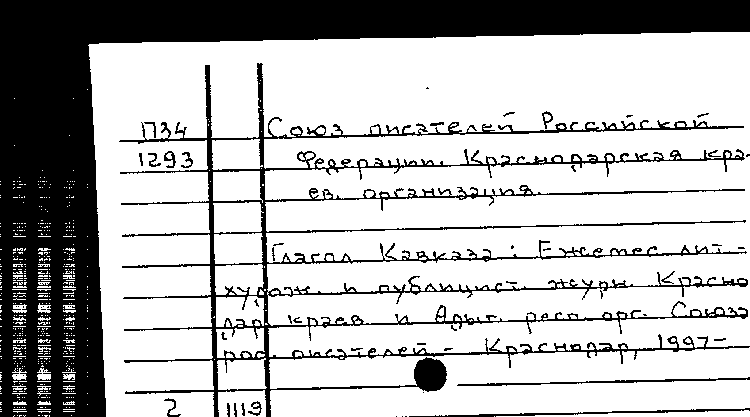 П34 Союз писателей Российской
1293 Федерации. Краснодарская кра-
ев. организация.
Глагол Кавказа : Ежемес лит -
худож. и публицист. журн. Красно
дар. краев. и Адыг. респ. орг. Союза
рос. писателей - Краснодар, 1997-
2 1119